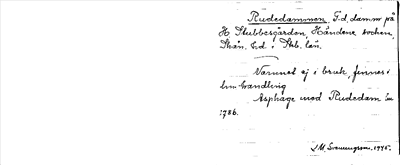 Rudedammen, F.d. damm på
H Stubbegården, Händene socken,
Skån. hd i Skb. län.
Namnet ej i bruk, finnes i
handling
Asphage med Rudedam
1786.
J M Svenungsson. 1945.